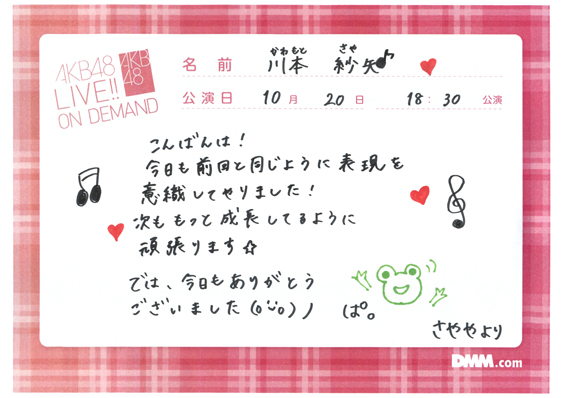 AKB48
LIVE!!
ON DEMAND
AKB
48
名前 かわもと さや
川本 紗矢
公演日 10月 20日 18:30 公演
こんばんは！
今日も前回と同じように表現を
意識してやりました！
次ももっと成長してるように
頑張ります☆
では、今日もありがとう
ございました(o¨o)ノ ぱ。
さややより
DMM.com